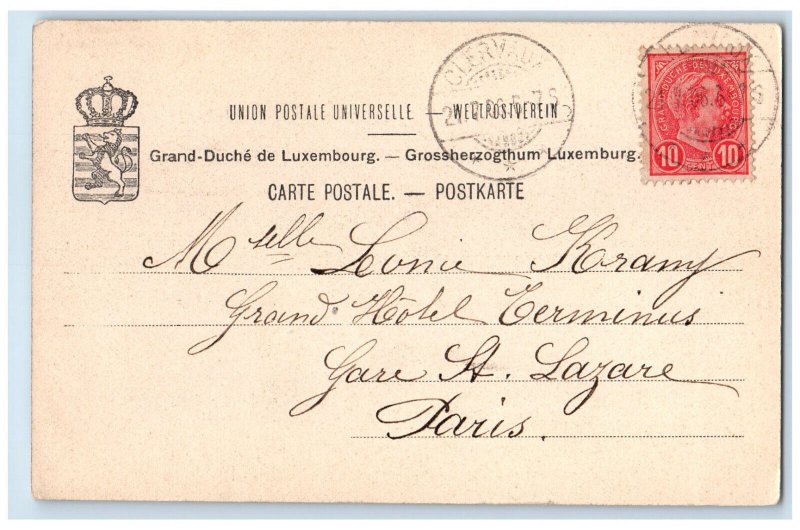 CLERVAUX
UNION POSTALE UNIVERSELLE. — WELTPOSTVEREIN
Grand-Duché de Luxembourg. — Grossherzogthum Luxemburg.
CARTE POSTALE. — POSTKARTE
GRAND-DUCHÉ DE LUXEMBOURG
10 10
Mselle Leonie Kramy
Grand Hôtel Terminus
Gare St. Lazare
Paris.